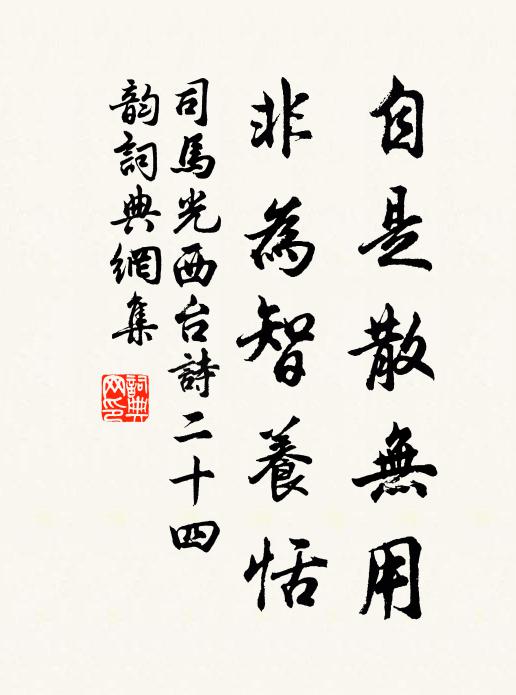 自是散無用
非為智養恬
司馬光西台詩二十四
韵詞典網集
詞典网印